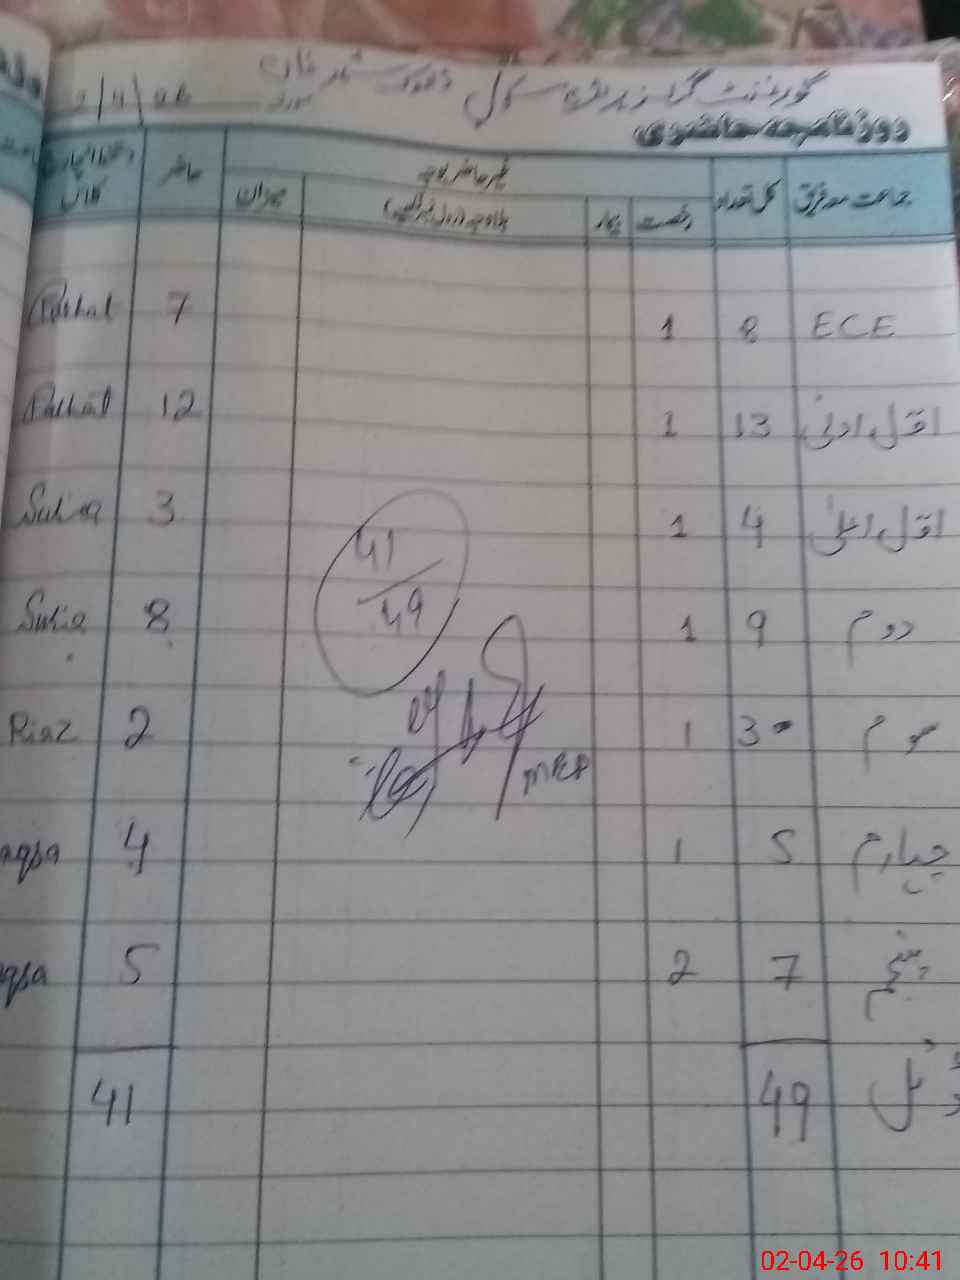 گورنمنٹ گرلز پرائمری سکول ڈھوک شہر خان
مورخہ 2/4/26
روزنامچہ حاضری
جماعت معہ فریق کل تعداد غیر حاضر بچے حاضر دستخط انچارج کلاس
رخصت بیمار بلاوجہ (رول نمبر لکھیے) میزان
ECE 8 1 7 Farhat
اول ادنیٰ 13 1 12 Farhat
اول اعلیٰ 4 1 3 Sadia
دوم 9 1 8 Sadia
سوم 3 1 2 Riaz
چہارم 5 1 4 aqsa
پنجم 7 2 5 aqsa
41/49
MEA
کل 49 41
02-04-26 10:41